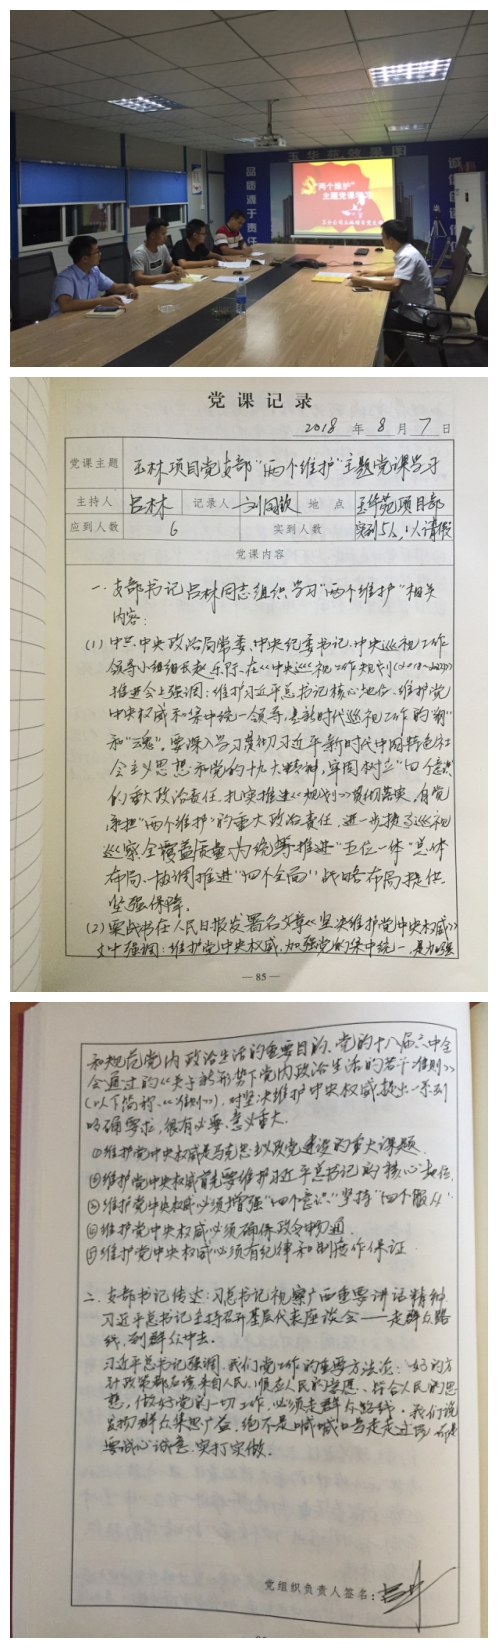 五华苑效果图
品质源于责任
"两个维护"
主题党课学习
党课记录
2018 年 8 月 7 日
党课主题 玉林项目党支部"两个维护"主题党课学习
主持人 吕林 记录人 刘同钦 地点 玉华苑项目部
应到人数 6 实到人数 实到5人,1人请假
党课内容
一、支部书记吕林同志组织学习"两个维护"相关
内容:
(1)中共中央政治局常委、中央纪委书记、中央巡视工作
领导小组组长赵乐际在《中央巡视工作规划(2018-2022)》
推进会上强调:维护习近平总书记核心地位、维护党
中央权威和集中统一领导,是新时代巡视工作的"纲"
和"魂"。要深入学习贯彻习近平新时代中国特色社
会主义思想和党的十九大精神,牢固树立"四个意识"
的重大政治责任,扎实推进《规划》贯彻落实,自觉
承担"两个维护"的重大政治责任,进一步提高巡视
巡察全覆盖质量,为统筹推进"五位一体"总体
布局、协调推进"四个全面"战略布局提供
坚强保障。
(2)栗战书在人民日报发署名文章《坚决维护党中央权威》
文中强调:维护党中央权威,加强党的集中统一,是加强
— 85 —
和规范党内政治生活的重要目的、党的十八届六中全
会通过的《关于新形势下党内政治生活的若干准则》
(以下简称《准则》),对坚决维护中央权威提出一系列
明确要求,很有必要、意义重大.
①维护党中央权威是马克思主义政党建设的重大课题.
②维护党中央权威首先要维护习近平总书记的核心地位.
③维护党中央权威必须增强"四个意识"坚持"四个服从"
④维护党中央权威必须确保政令畅通.
⑤维护党中央权威必须有纪律和制度作保证.
二、支部书记传达:习总书记视察广西重要讲话精神.
习近平总书记主持召开基层代表座谈会——走群众路
线,到群众中去。
习近平总书记强调,我们党工作的重要方法论:好的方
针政策都应该来自人民、顺应人民的意愿、符合人民的思
想,做好党的一切工作,必须走群众路线。我们说
发扬群众集思广益,绝不是喊喊口号走走过场,而是
要诚心诚意、实打实做。
党组织负责人签名:吕林